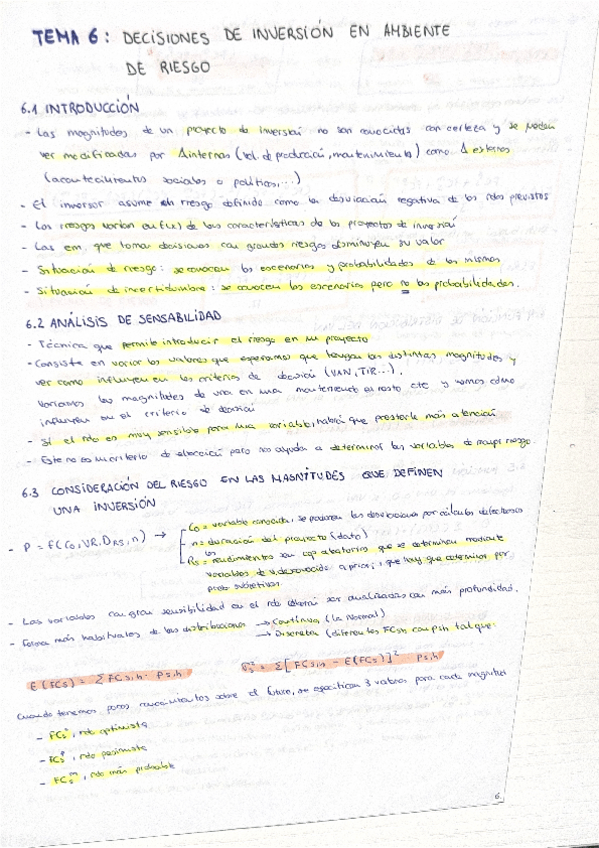 TEMA 6: DECISIONES DE INVERSIÓN EN AMBIENTE
DE RIESGO
6.1 INTRODUCCIÓN
- Las magnitudes de un proyecto de inversión no son conocidas con certeza y se pueden
ver modificadas por Δinternas (Vol. de producción, mantenimiento) como Δ externas
(acontecimientos sociales o políticas,...)
- El inversor asume el riesgo definido como la desviación negativa de los rdos previstos
- Los riesgos varían en f(x) de las características de los proyectos de inversión
- Las em, que toman decisiones con grandes riesgos disminuyen su valor
- Situación de riesgo: se conocen los escenarios y probabilidades de los mismos
- Situación de incertidumbre: se conocen los escenarios pero no las probabilidades.
6.2 ANÁLISIS DE SENSABILIDAD
- Técnica que permite introducir el riesgo en un proyecto
- Consiste en variar los valores que esperamos que tengan las distintas magnitudes y
ver como influyen en los criterios de decisión (VAN, TIR...).
Variamos las magnitudes de una en una manteniendo el resto cte y vemos cómo
influyen en el criterio de decisión
- Si el rdo es muy sensible para una variable, habrá que prestarle más atención
- Este no es un criterio de elección pero nos ayuda a determinar las variables de mayor riesgo.
6.3 CONSIDERACIÓN DEL RIESGO EN LAS MAGNITUDES QUE DEFINEN
UNA INVERSIÓN
- P = f(Co, VR, DRs, n) →
Co = variable conocida, se producen las desviaciones por cálculos defectuosos
n = duración del proyecto (dato)
Rs = los rendimientos son aleatorios que se determinan mediante
variables de v. desconocido a priori, que hay que determinar por
prob subjetivas
- Las variables con gran sensibilidad en el rdo deberán ser analizadas con más profundidad.
- Formas más habituales de las distribuciones → Continua (la Normal)
→ Discreta (diferentes FCsh con Psh tal que:
E(FCs) = Σ FCs,h · Ps,h
σs² = Σ [FCs,h - E(FCs)]² · Ps,h
Cuando tenemos pocos conocimientos sobre el futuro, se especifican 3 valores para cada magnitud
- FCs°, rdo optimista
- FCsᵖ, rdo pesimista
- FCsᵐ, rdo más probable
6